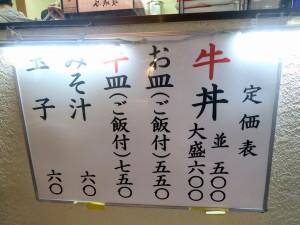 定価表
牛丼 並 五〇〇
大盛 六〇〇
お皿(ご飯付)五五〇
牛皿(ご飯付)七五〇
みそ汁 六〇
玉子 六〇